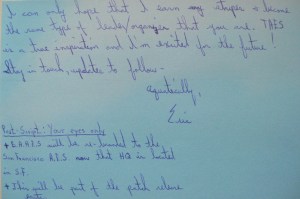 I can only hope that I earn my stripes to become
the same type of leader/manager that you are. THIS
is a true inspiration and I'm excited for the future!
Stay in touch, updates to follow -
Eric
Post-Script: Your eyes only
will be re-branded to the
San Francisco now that HQ is located
in S.F.
• This will be part of the patch release